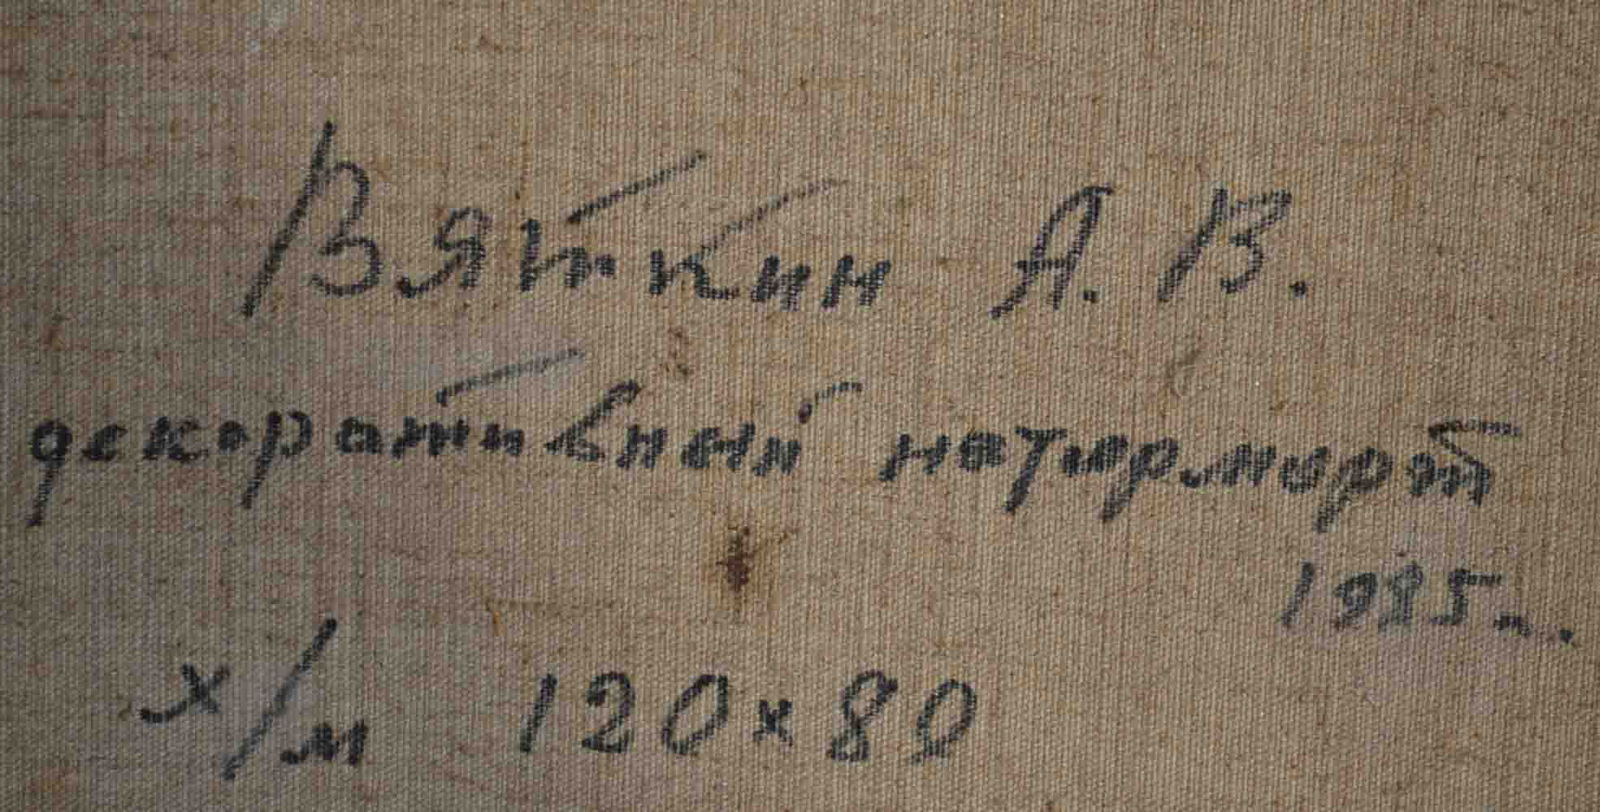 Вяткин А. В.
декоративный натюрморт
1985 г.
х/м 120х80